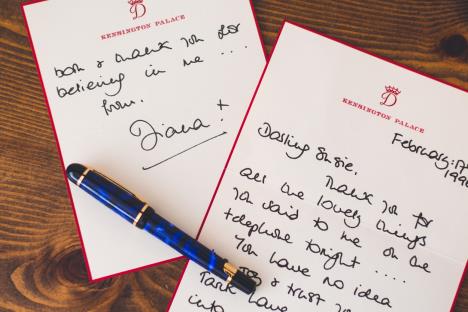 D
KENSINGTON PALACE
both & thank you for
believing in me ....
from.
Diana. x
D
KENSINGTON PALACE
February:
Darling Susie,
Thank you for
all the lovely things
you said to me on the
telephone tonight ....
You have no idea
& trust
have
into